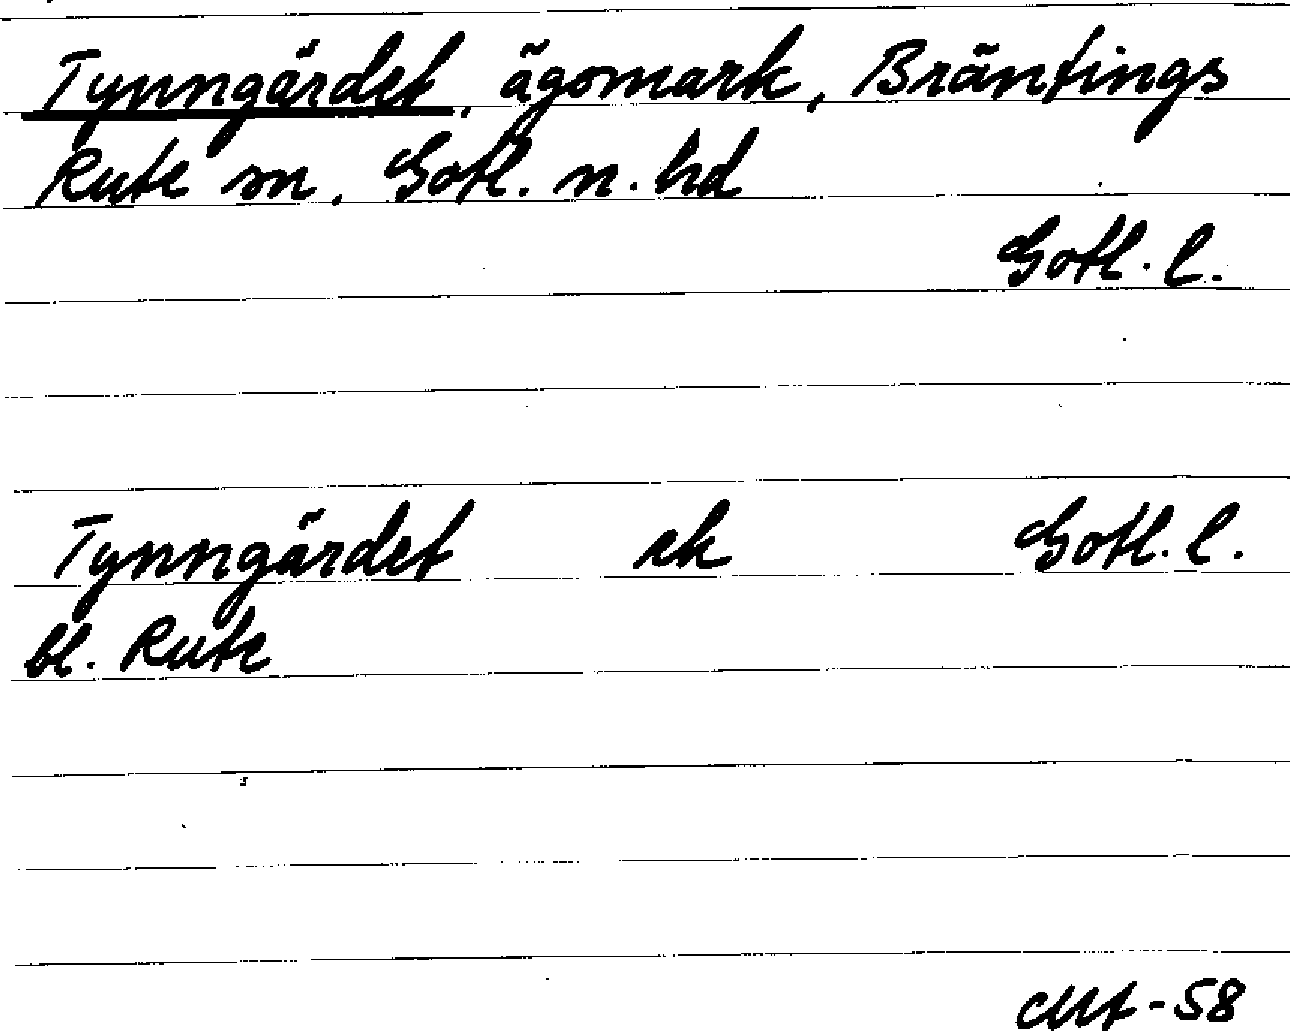 Tynngärdet, ägomark, Bräntings
Rute sn, Gotl. n. hd
Gotl. l.
Tynngärdet ek Gotl. l.
bl. Rute
-58